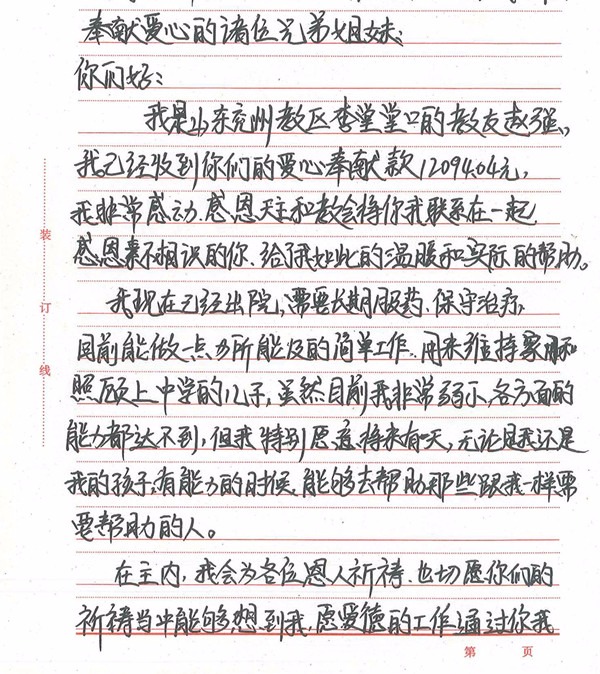 奉献爱心的诸位兄弟姐妹：
你们好：
我是山东兖州教区李堂堂口的教友赵强，
我已经收到你们的爱心奉献款12094.04元，
我非常感动.感恩天主和教会将你我联系在一起
感恩素不相识的你.给了我如此的温暖和实际的帮助。
我现在已经出院，需要长期服药.保守治疗，
目前能做一点力所能及的简单工作.用来维持家用和
照顾上中学的儿子，虽然目前我非常弱小，各方面的
能力都达不到，但我特别愿意将来有一天，无论是我还是
我的孩子，有能力的时候.能够去帮助那些跟我一样需
要帮助的人。
在主内，我会为各位恩人祈祷.也切愿你们的
祈祷当中能够想到我，愿爱德的工作通过你我
装
订
线
第 页